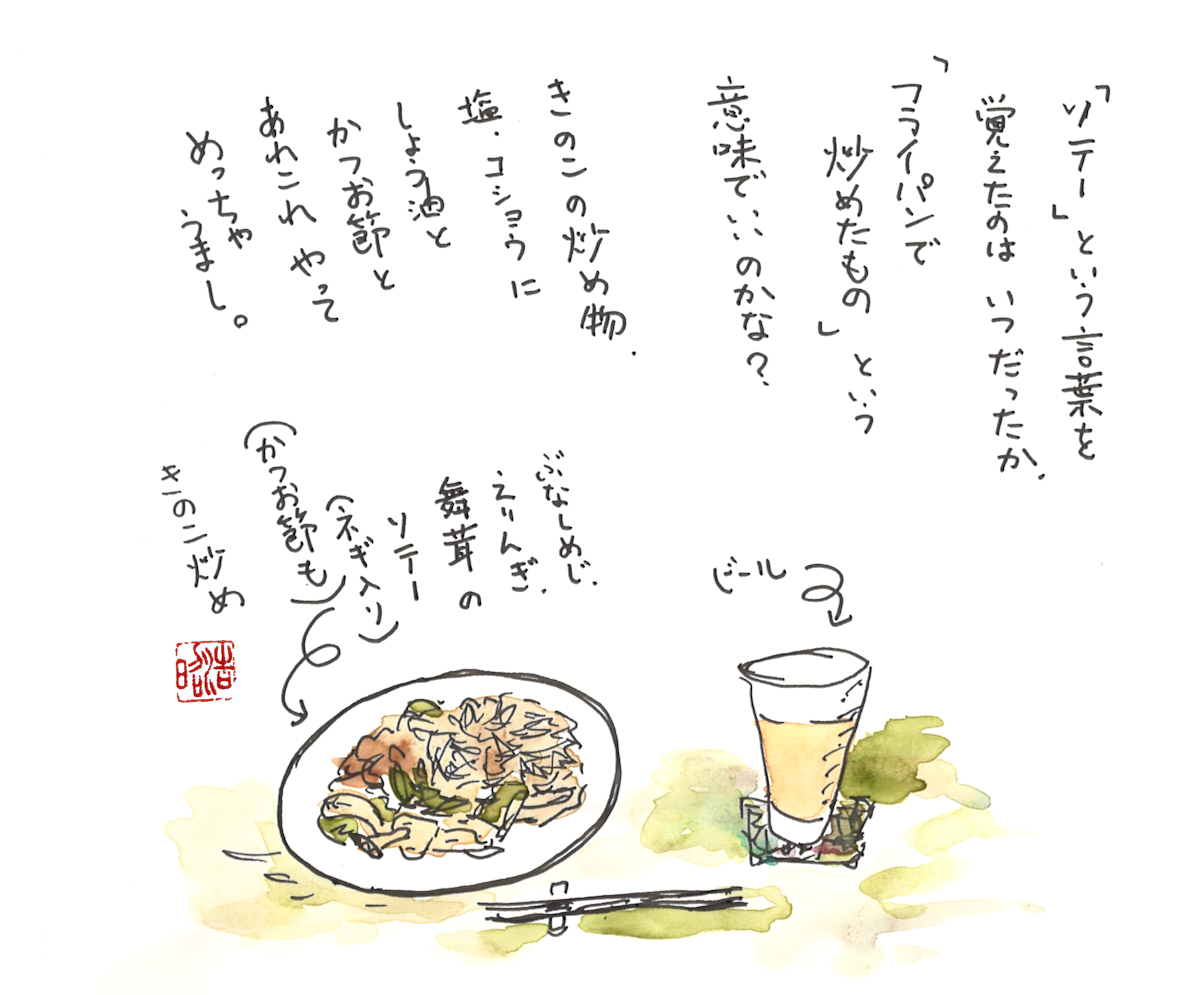 「ソテー」という言葉を
覚えたのは いつだったか.
「フライパンで
炒めたもの」という
意味でいいのかな?
きのこの炒め物.
塩.コショウに
しょう油と
かつお節と
あれこれ やって
めっちゃ
うまし。
ビール
ぶなしめじ.
えりんぎ.
舞茸の
ソテー
(ネギ入り)
(かつお節も)
きのこ炒め